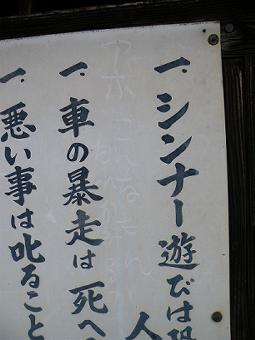 一、シンナー遊びは恐
人
一、車の暴走は死へ
一、悪い事は叱ること